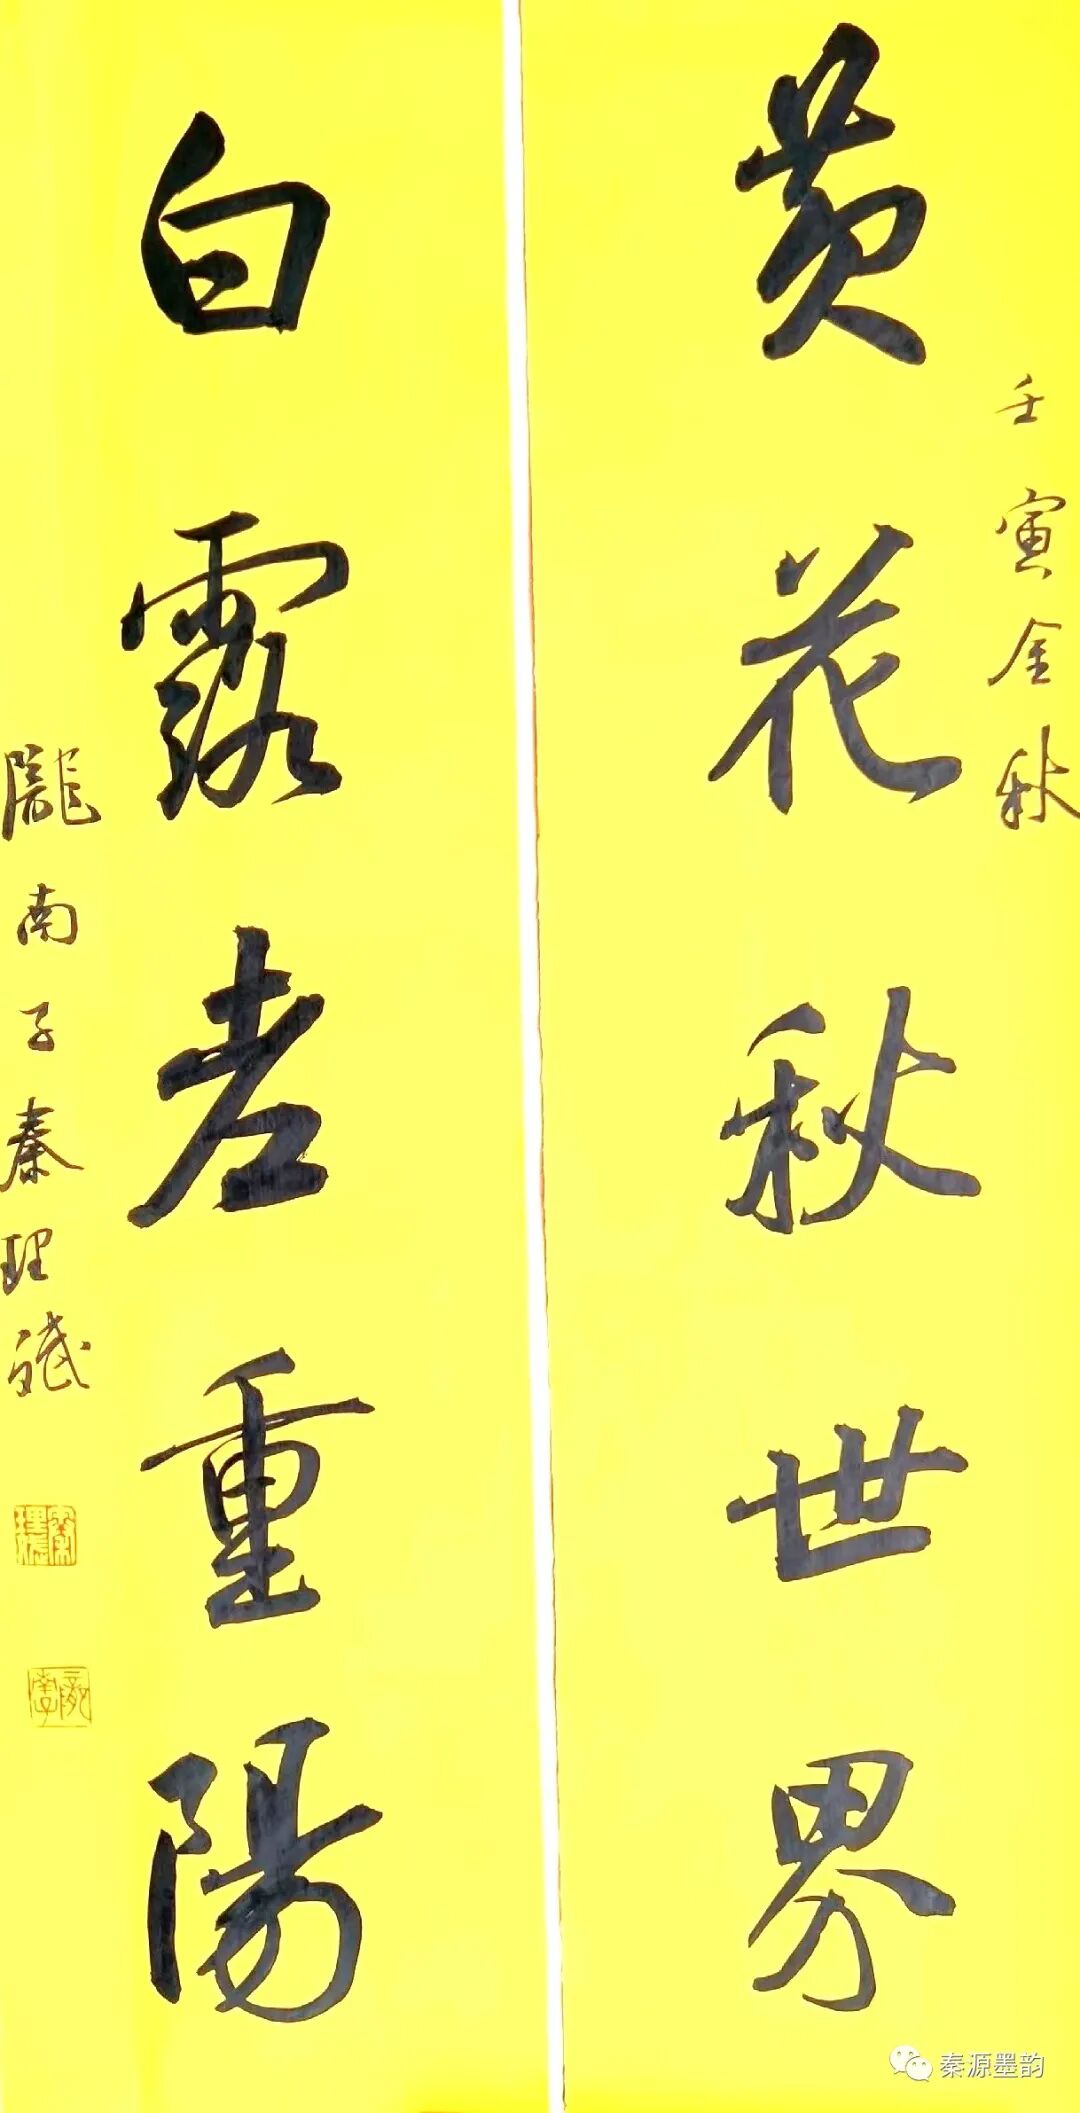 壬寅金秋
黄花秋世界
白露老重陽
隴南子秦理斌
秦源墨韵